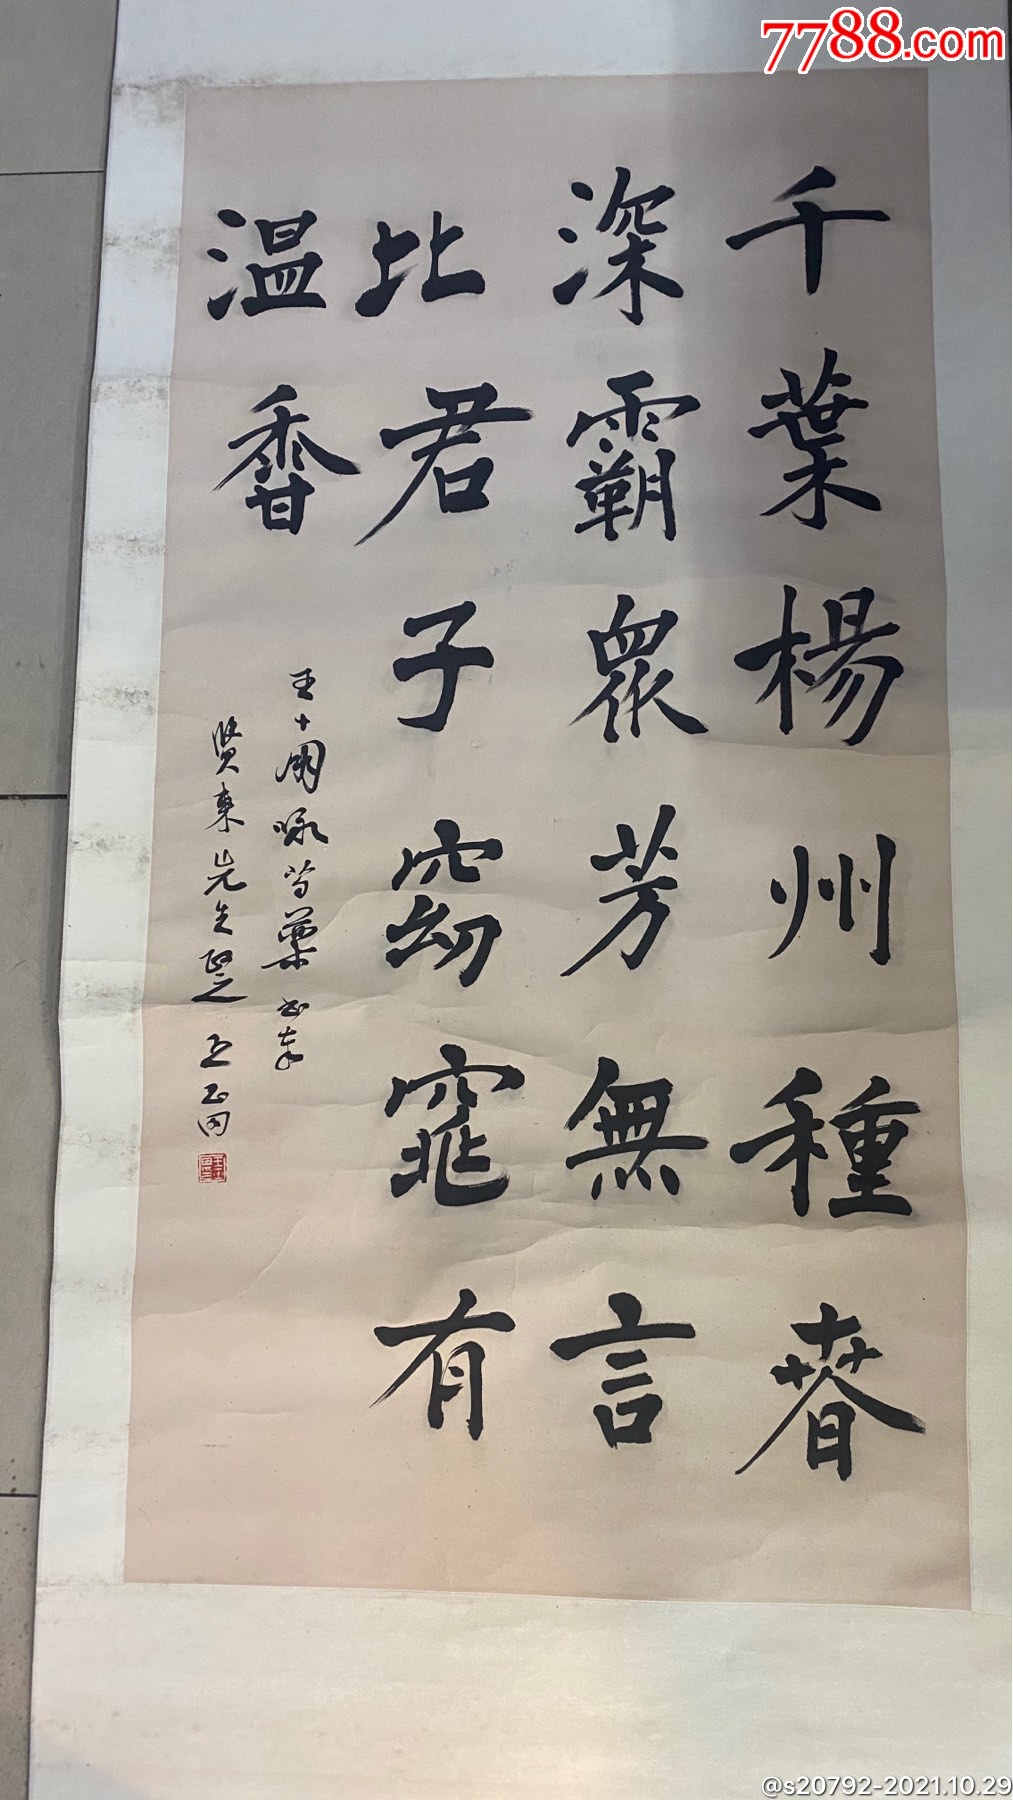 7788.com
千葉楊州種春
深霸眾芳無言
比君子窈窕有
温香
王十朋咏芍藥書奉
賢東先生
@s20792-2021.10.29